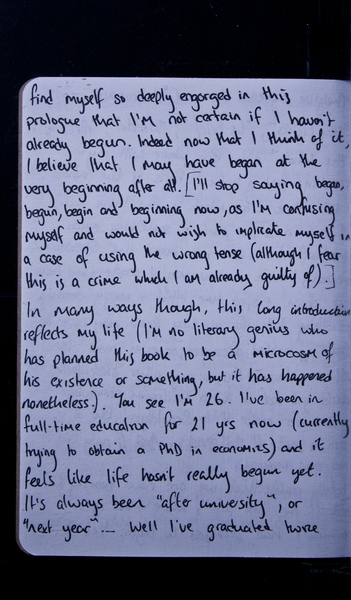 find myself so deeply engorged in this
prologue that I'm not certain if I haven't
already begun. Indeed now that I think of it,
I believe that I may have began at the
very beginning after all. [I'll stop saying began,
begun, begin and beginning now, as I'm confusing
myself and would not wish to implicate myself in
a case of using the wrong tense (although I fear
this is a crime which I am already guilty of).]
In many ways though, this long introduction
reflects my life (I'm no literary genius who
has planned this book to be a microcosm of
his existence or something, but it has happened
nonetheless). You see I'm 26. I've been in
full-time education for 21 yrs now (currently
trying to obtain a PhD in economics) and it
feels like life hasn't really begun yet.
It's always been "after university", or
"next year"... Well I've graduated twice